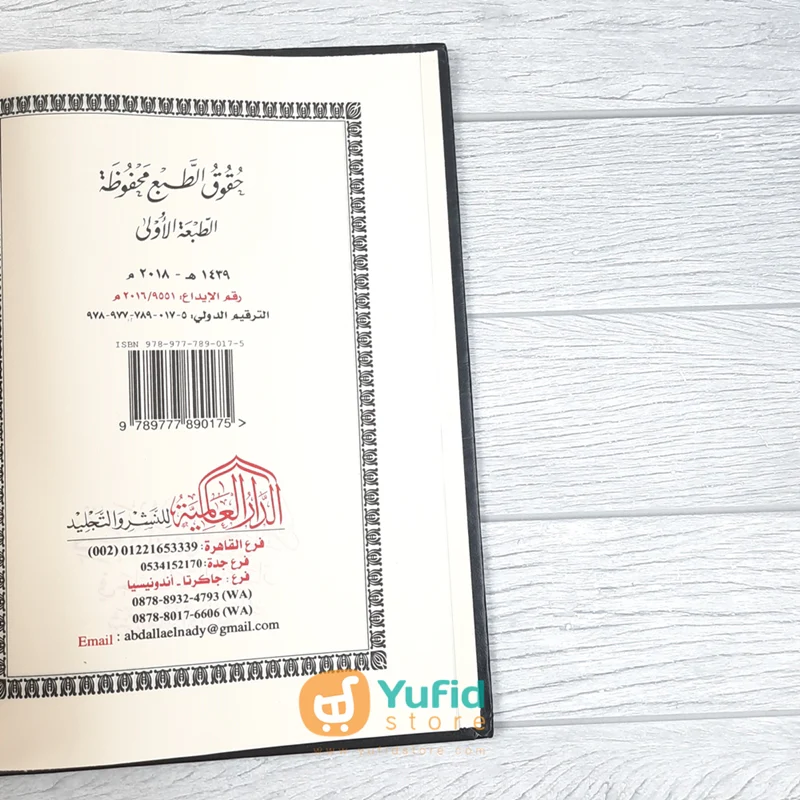 حُقُوقُ الطَّبْعِ مَحْفُوظَة
الطَّبْعَة الأُوْلَى
١٤٣٩ هـ - ٢٠١٨ م
رقم الإيداع: ٢٠١٦/٩٥٥١ م
الترقيم الدولي: ٥-٠١٧-٧٨٩-٩٧٧-٩٧٨
ISBN 978-977-789-017-5
9 789777 890175 >
الدَّارُ العَالَمِيَّة للنَشْرِ وَالتَّجْلِيد
فرع القاهرة: 01221653339 (002)
فرع جدة: 0534152170
فرع: جاكرتا - أندونيسيا
0878-8932-4793 (WA)
0878-8017-6606 (WA)
Email : abdallaelnady@gmail.com
Yufid
store
www.yufidstore.com